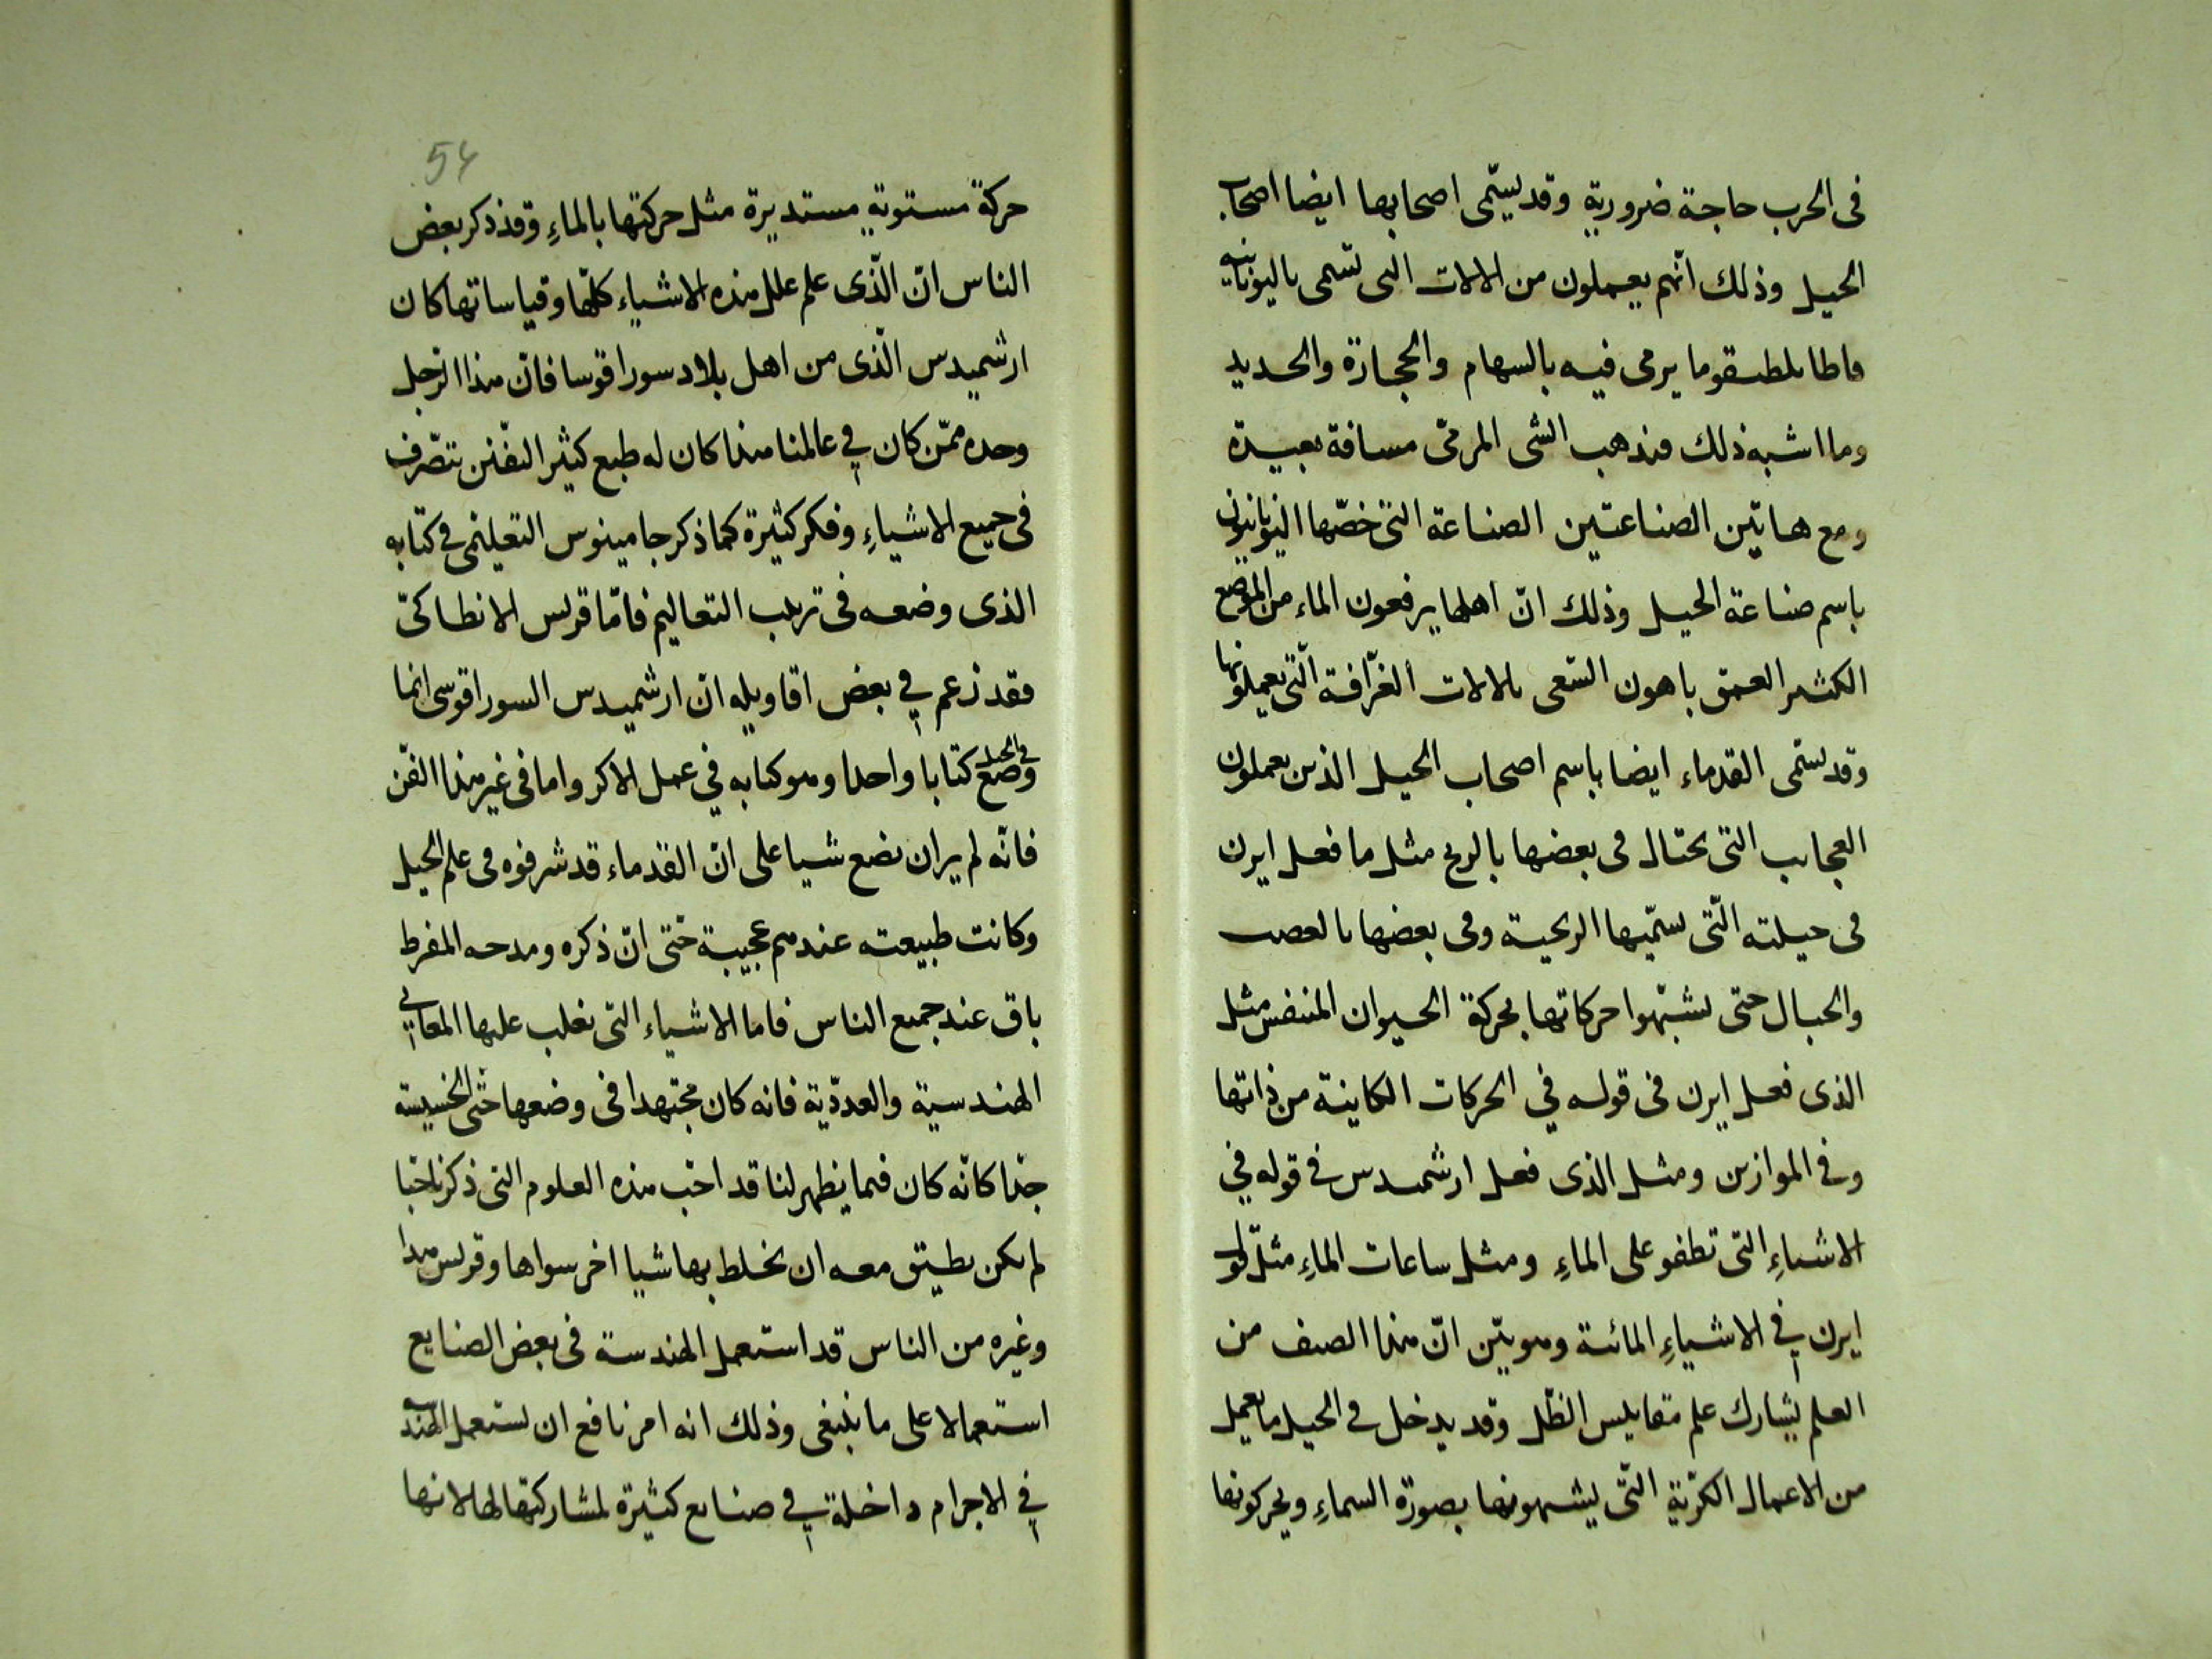 فى الحرب حاجة ضرورية وقد يسمّى اصحابها ايضا اصحاب
الحيل وذلك انّهم يعملون من الالات التى تسمى باليونانيه
ما يرمى فيه بالسهام والحجارة والحديد
وما اشبه ذلك فيذهب الشى المرمىّ مسافة بعيدة
ومع هاتين الصناعتين الصناعة التى خصّها اليونانيون
باسم صناعة الحيل وذلك انّ اهلها يرفعون الماء من الموضع
الكثير العمق باهون السّعى بالالات الغرّافة الّتى يعملونها
وقد يسمّى القدماء ايضا باسم اصحاب الحيل الذين يعملون
العجايب التى يحتال فى بعضها بالريح مثل ما فعل ايرن
فى حيلته الّتى يسمّيها الريحية وفى بعضها بالعصب
والحبال حتى يشبّهوا حركاتها بحركة الحيوان المتنفس مثل
الذى فعل ايرن فى قوله في الحركات الكاينة من ذاتها
وفى الموازين ومثل الذى فعل ارشميدس فى قوله في
الاشياءِ التى تطفو على الماءِ ومثل ساعات الماءِ مثل قول
ايرن في الاشياءِ المائية وهو بيّن انّ هذا الصنف من
العلم يشارك علم مقاييس الظّل وقد يدخل فى الحيل ما يعمل
من الاعمال الكرّية التّى يشبهونها بصورة السماءِ ويحركونها
54
حركة مستوية مستديرة مثل حركتها بالماءِ وقد ذكر بعض
الناس انّ الّذى علم علل هذه الاشياء كلّها وقياساتها كان
ارشميدس الّذى من اهل بلاد سوراقوسا فانّ هذا الرّجل
وحده ممّن كان في عالمنا هذا كان له طبع كثير التفّنن يتصّرف
فى جميع الاشياءِ وفكر كثيرة كما ذكر جامينوس التعليمى فى كتابه
الذى وضعه فى ترتيب التعاليم فامّا قرلس الانطاكىّ
فقد زعم في بعض اقاويله انّ ارشميدس السوراقوسى انما
وضع فى الحيل كتابا واحدا وهو كتابه في عمل الاكر واما فى غير هذا الفّن
فانّه لم ير ان يضع شيا على انّ القدماء قد شرفوه فى علم الحيل
وكانت طبيعته عندهم عجيبة حتى انّ ذكره ومدحه المفرط
باق عند جميع الناس فاما الاشياء التى يغلب عليها المعانى
الهندسية والعدديّة فانه كان مجتهدا فى وضعها حتى الخسيسة
جدّا كانّه كان فيما يظهر لنا قد احّب هذه العلوم التى ذكرنا حبّا
لم يكن يطيق معه ان يخلط بها شيا اخر سواها وقرلس هذا
وغيره من الناس قد استعمل الهندسة فى بعض الصنايع
استعمالا على ما ينبغى وذلك انه امر نافع ان يستعمل الهندسة
في الاجرام داخلة في صنايع كثيرة لمشاركتها لها لانها